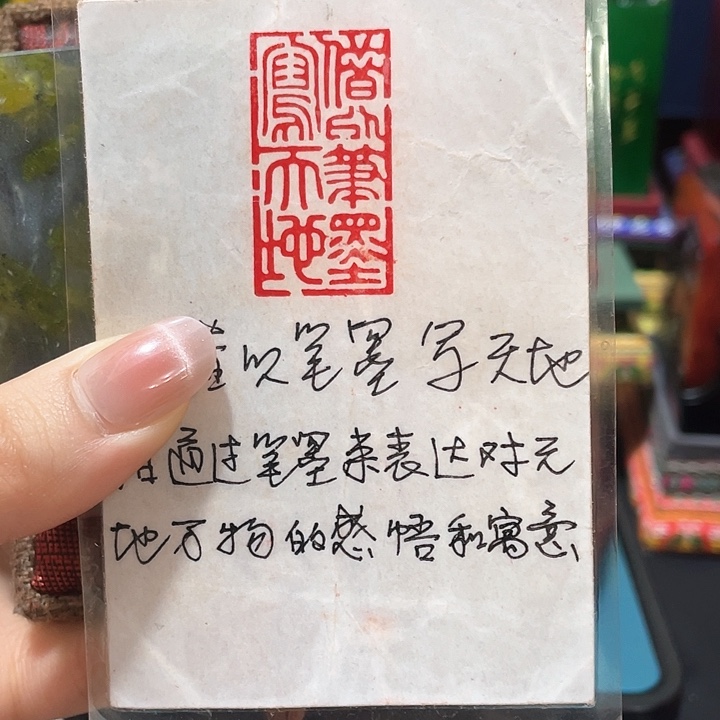 借以筆墨
寫天地
以笔墨写天地
指通过笔墨来表达对天
地万物的感悟和寓意